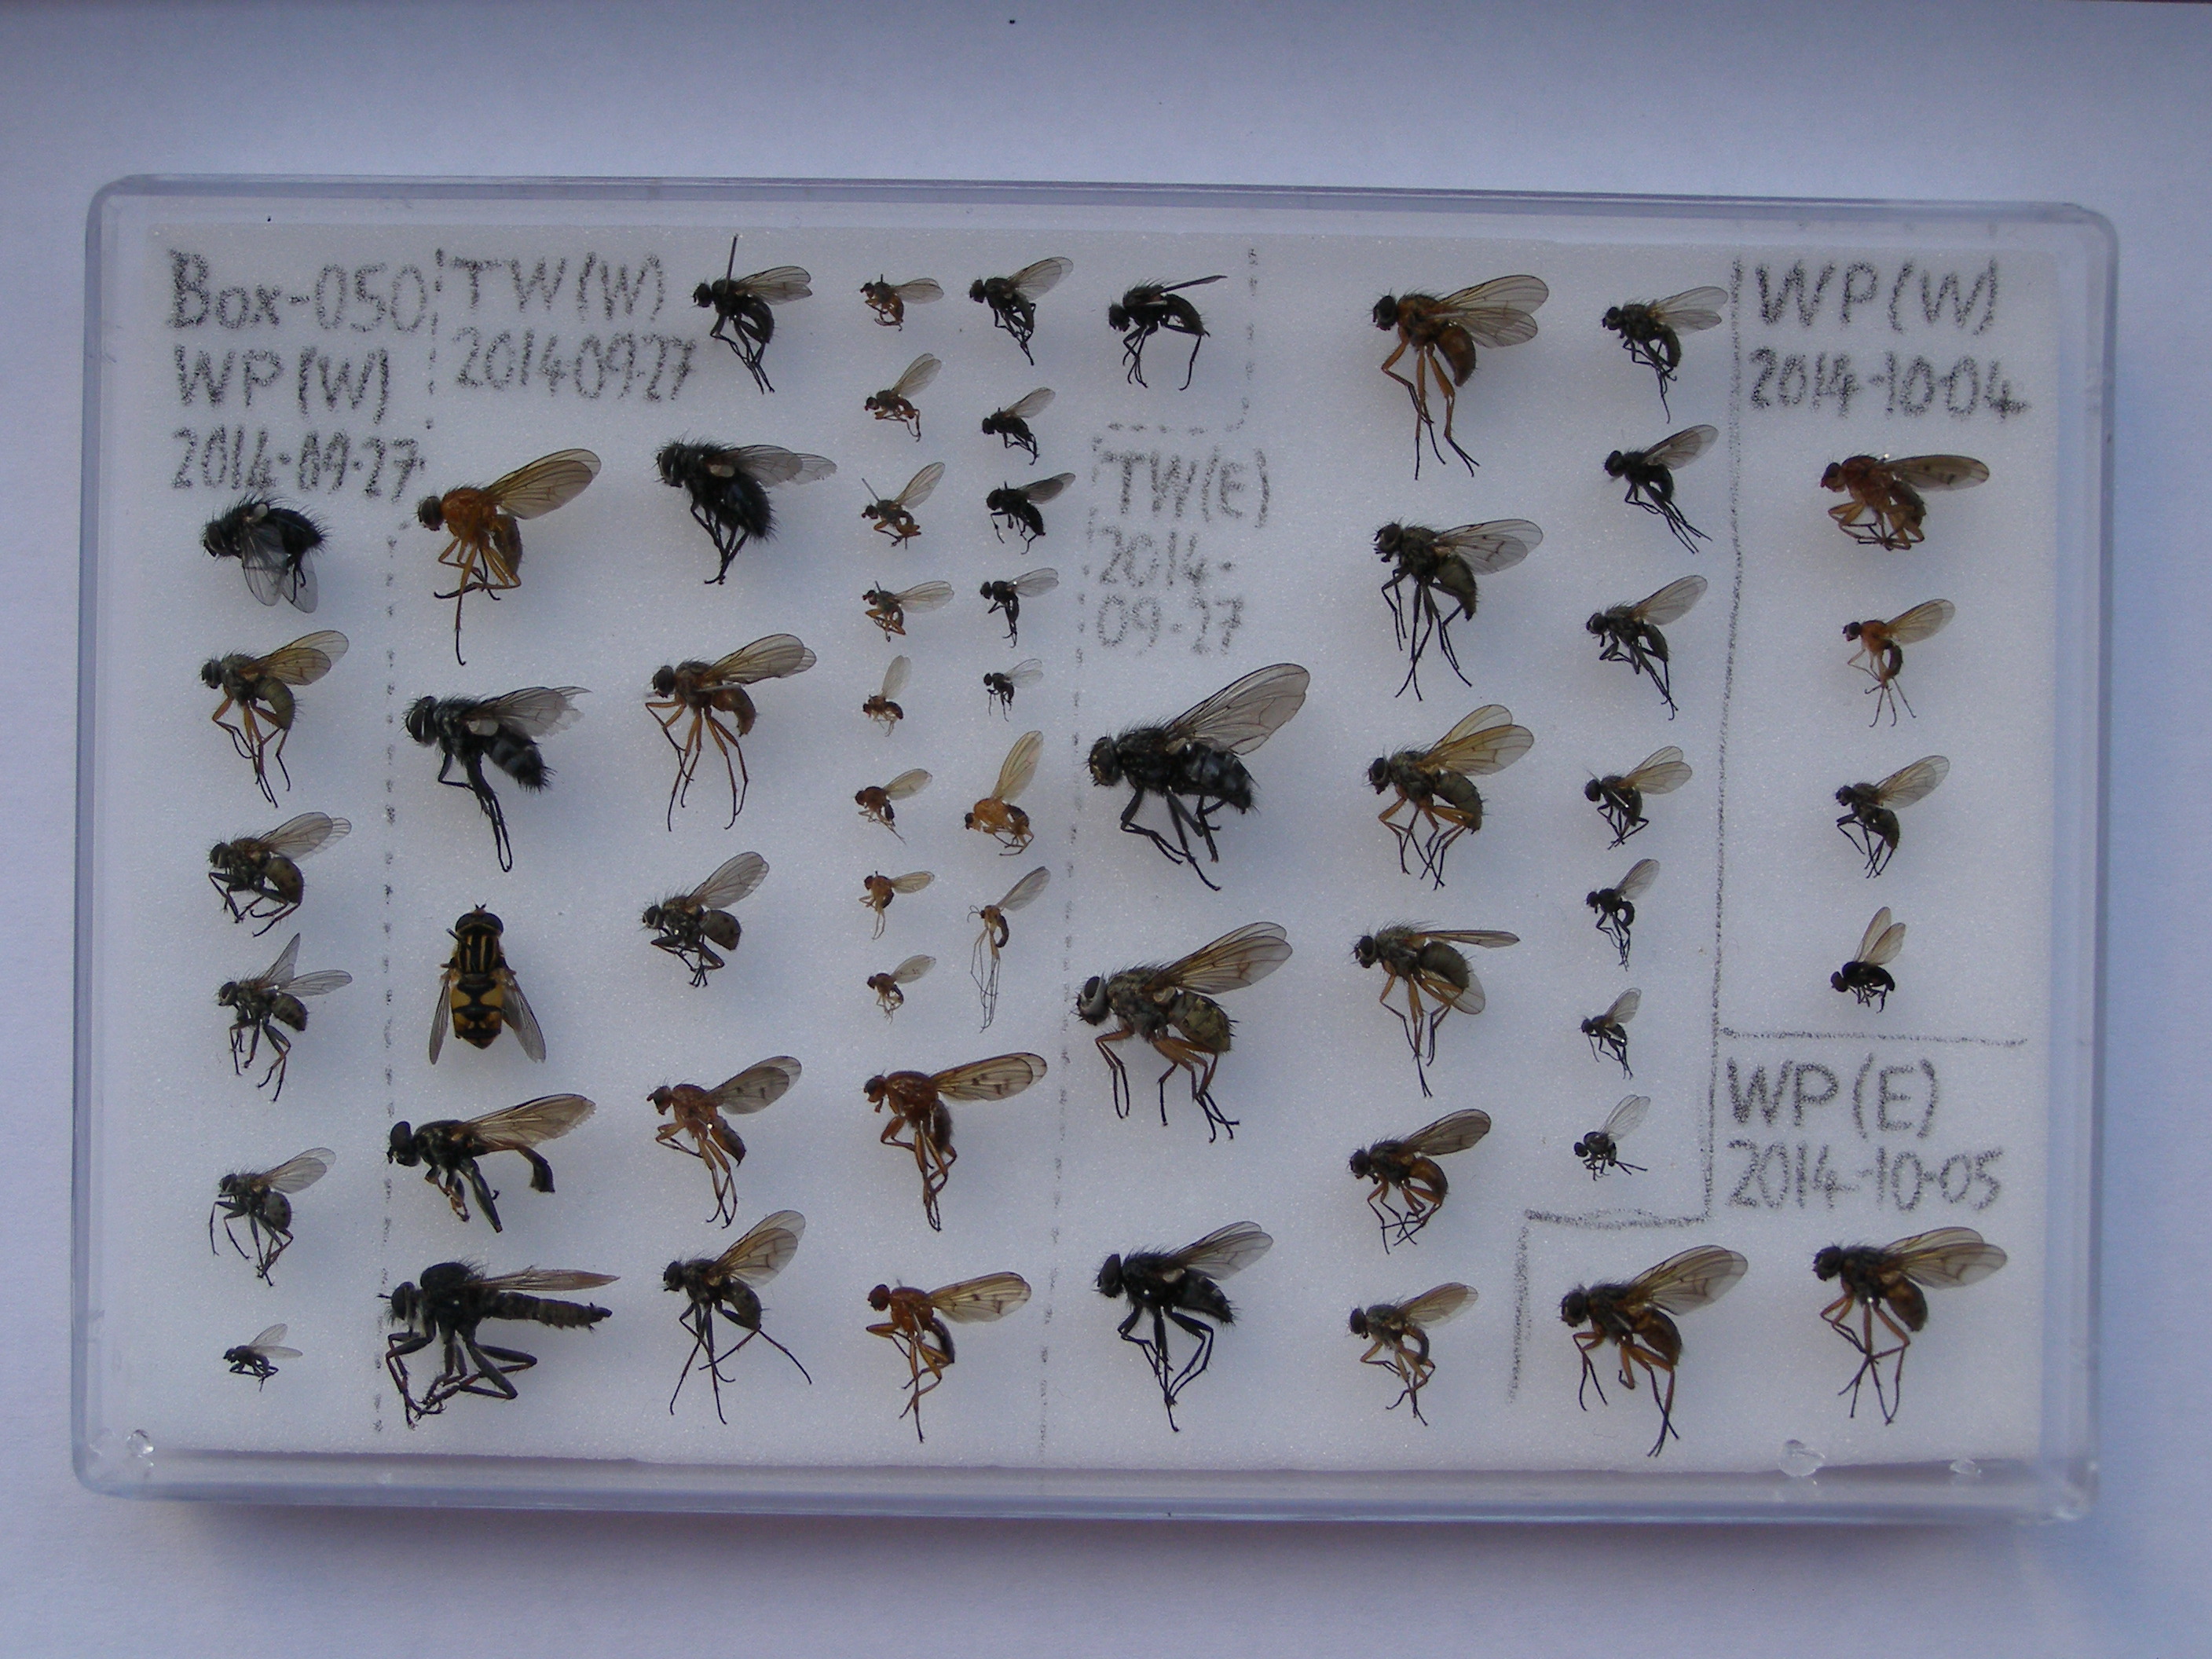 Box-050
WP(W)
2014-09-27
TW(W)
2014-09-27
TW(E)
2014-
09-27
WP(W)
2014-10-04
WP(E)
2014-10-05